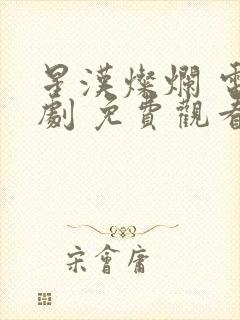 星漢燦爛 電
劇 免費觀看
宋會庸